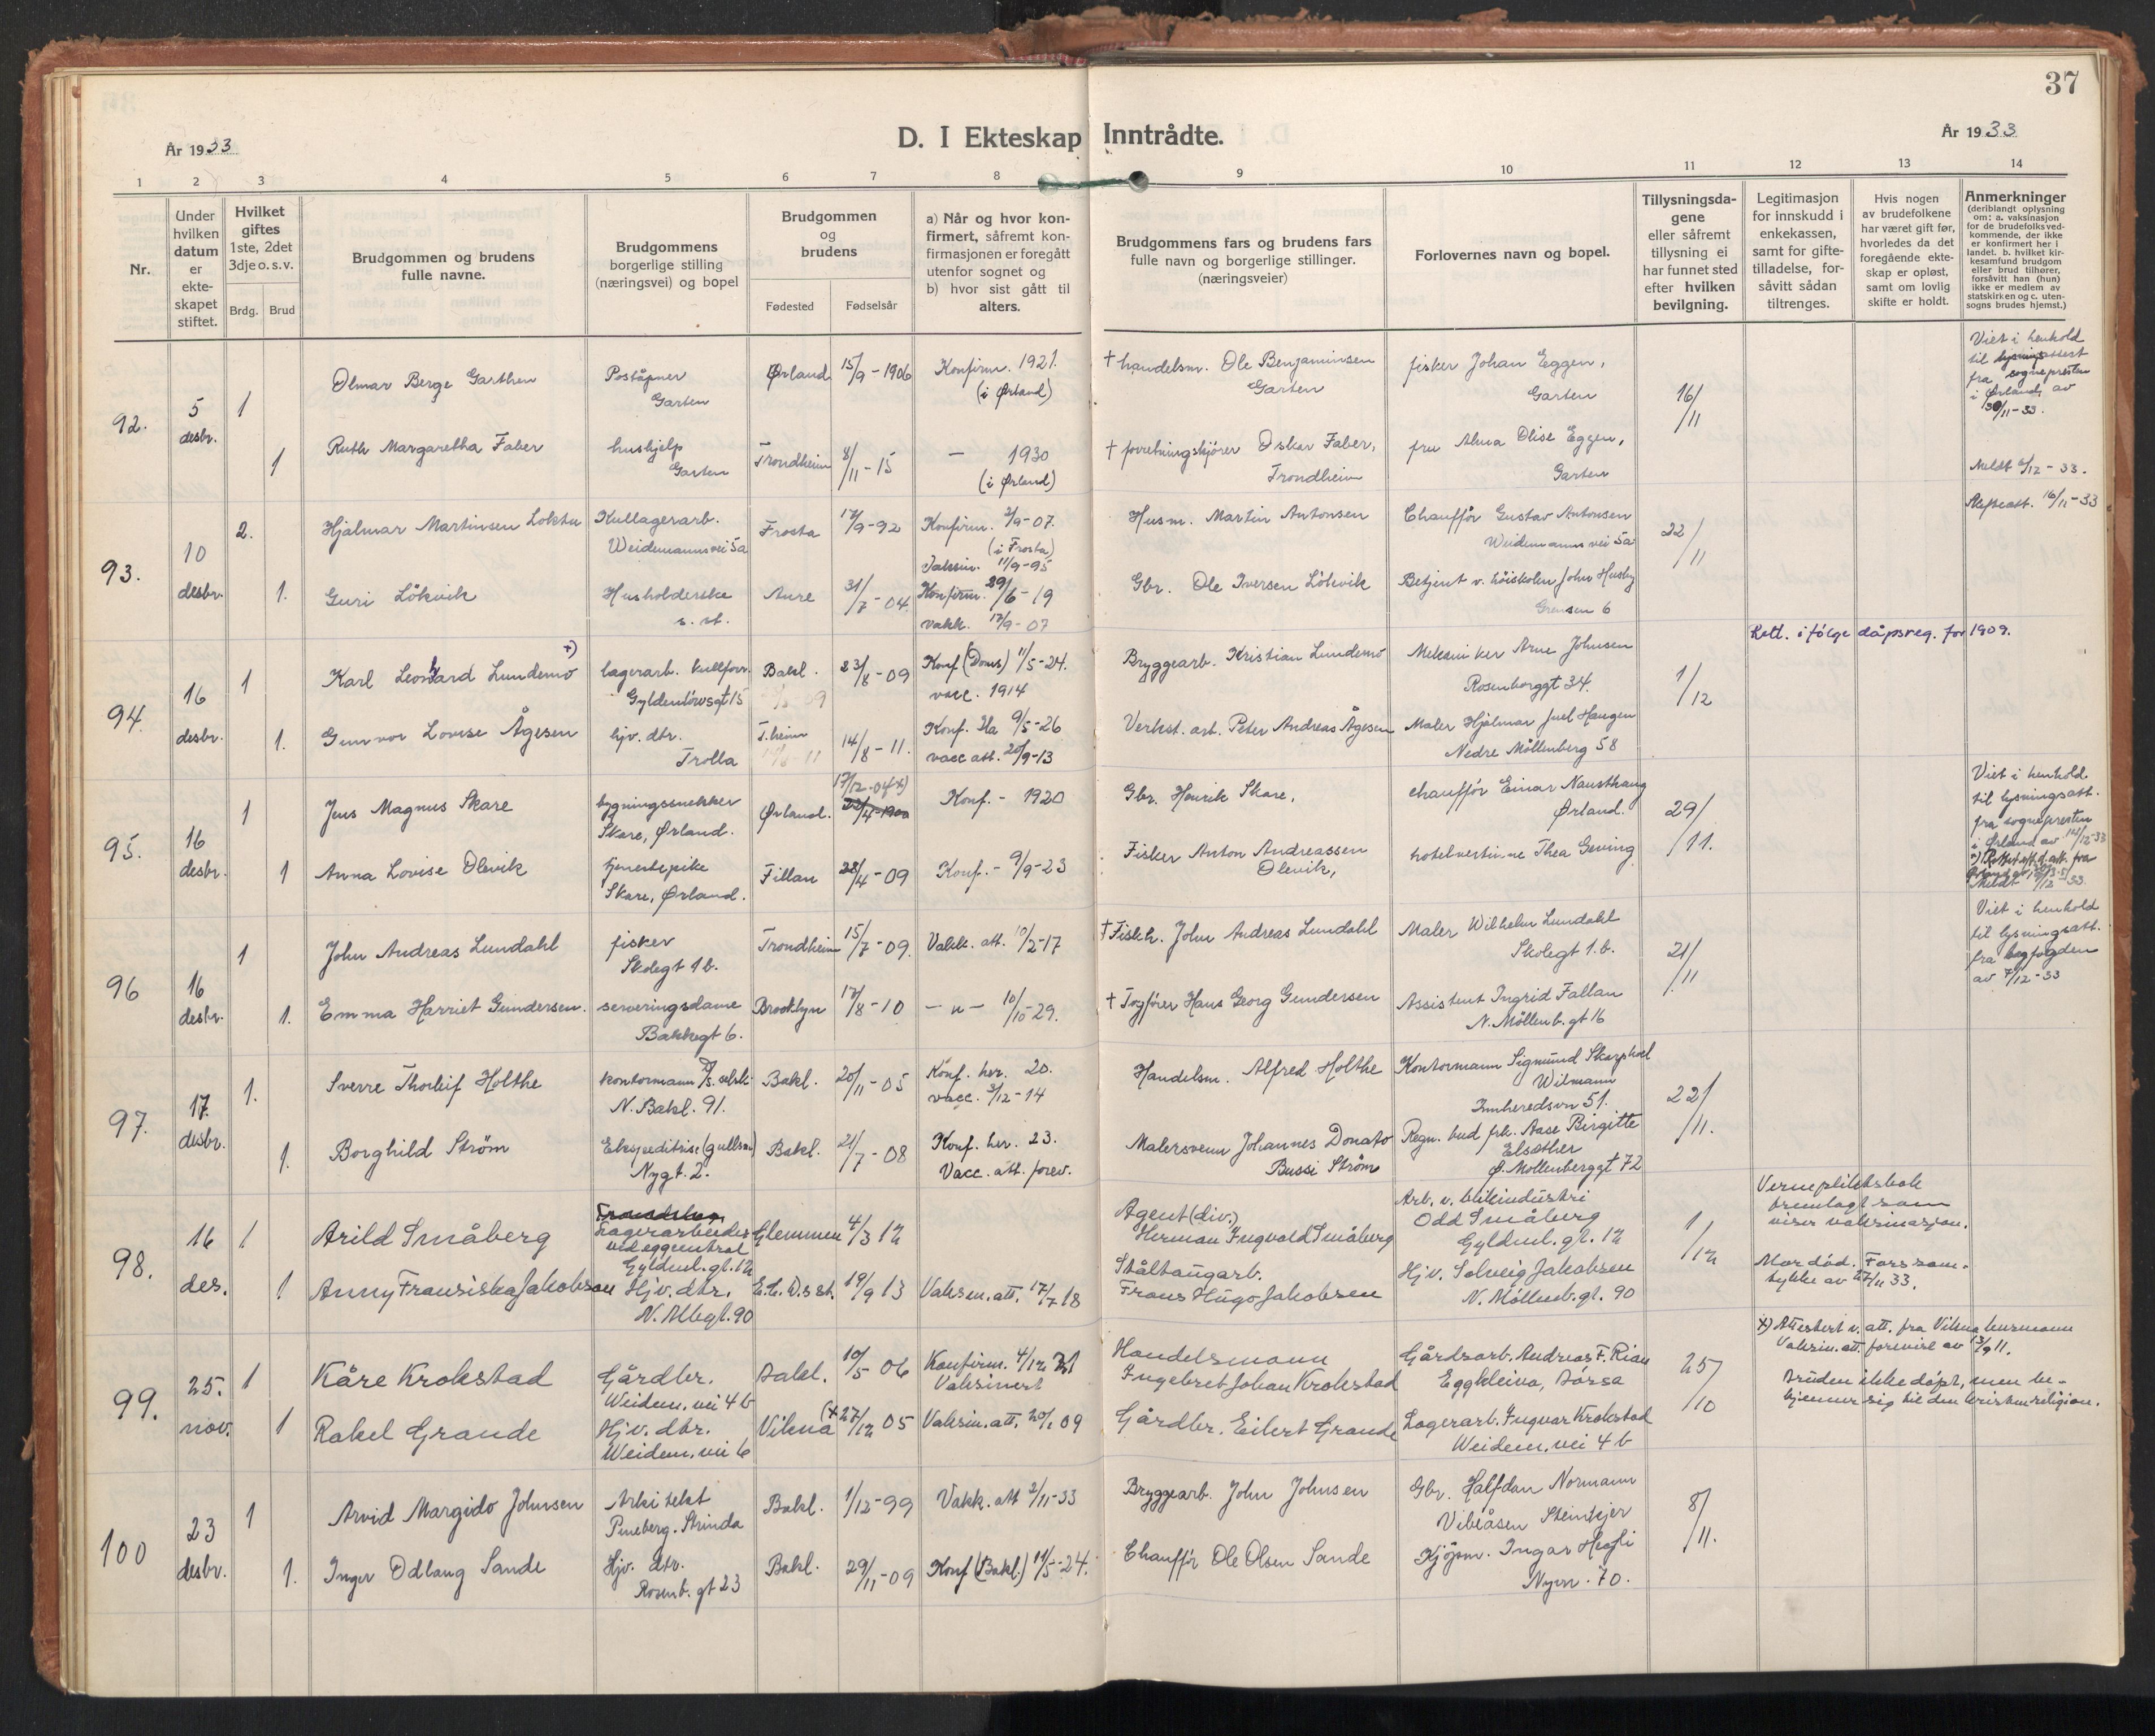 37
År 1933
D. I Ekteskap Inntrådte.
År 1933
1 2 3 4 5 6 7 8 9 10 11 12 13 14
Nr.
Under hvilken datum er ekteskapet stiftet.
Hvilket giftes 1ste, 2det 3dje o. s. v.
Brdg. Brud
Brudgommen og brudens fulle navne.
Brudgommens borgerlige stilling (næringsvei) og bopel
Brudgommen og brudens
Fødested Fødselsår
a) Når og hvor konfirmert, såfremt konfirmasjonen er foregått utenfor sognet og
b) hvor sist gått til alters.
Brudgommens fars og brudens fars fulle navn og borgerlige stillinger. (næringsveier)
Forlovernes navn og bopel.
Tillysningsdagene eller såfremt tillysning ei har funnet sted efter hvilken bevilgning.
Legitimasjon for innskudd i enkekassen, samt for giftetilladelse, forsåvitt sådan tiltrenges.
Hvis nogen av brudefolkene har været gift før, hvorledes da det foregående ekteskap er opløst, samt om lovlig skifte er holdt.
Anmerkninger (deriblandt oplysning om: a. vaksinasjon for de brudefolks vedkommende, der ikke er konfirmert her i landet. b. hvilket kirkesamfund brudgom eller brud tilhører, forsåvitt han (hun) ikke er medlem av statskirken og c. utensogns brudes hjemst.)
92. 5 desbr.
1 Olmar Berge Garthen
Poståpner
Garten
Ørland 15/9 - 1906
Konfirm. 1921.
(i Ørland)
† handelsm. Ole Benjaminsen
Garten
fisker Johan Eggen,
Garten
16/11
Viet i henhold
til lysningsattest
fra sognepresten
i Ørland av
30/11-33.
1 Ruth Margaretha Faber
hushjelp
Garten
Trondheim 8/11 - 15
— 1930
(i Ørland)
† forretningsfører Oskar Faber,
Trondheim
fru Alma Olise Eggen,
Garten
93. 10 desbr.
2. Hjalmar Martinsen Loktu
Kullagerarb.
Weidemannsvei 5a
Frosta 17/9-92
Konfirm. 2/9-07.
(i Frosta)
11/9-95
Husm. Martin Antonsen
Chauffør Gustav Antonsen
Weidemanns vei 5a
22/11
16/11-33
1. Guri Lökvik
Husholderske
s. st.
Aure 31/7 - 04
Konfirm. 29/6-19
vakk. 13/9-07
Gbr. Ole Iversen Lökvik
Betjent v. höiskolen John Husby
Grensen 6
94. 16 desbr.
1 Karl Leonhard Lundemo x)
lagerarb. kullforr.
Gyldenløvsgt 15
Bakl. 23/8-09
Konf. (Doms) 11/5-24.
vacc. 1914
Bryggearb. Kristian Lundemo
Mekaniker Arne Johnsen
Rosenborggt 34.
1/12
Rett. i følge dåpsreg. for 1909.
1. Gunvor Lovise Ågesen
hjv. dtr.
Trolla
T.heim 14/8 - 11.
Konf. Ila 9/5-26
vacc att. 20/9-13
Verkst. arb. Peter Andreas Ågesen
Maler Hjalmar Juel Haugen
Nedre Möllenberg 58
95. 16 desbr.
1 Jens Magnus Skare
bygningssnekker
Skare, Ørland.
Ørland. 17/12-04 x)
22/4-1900
Konf. - 1920
Gbr. Henrik Skare,
chauffør Einar Nausthaug
Ørland.
29/11.
Viet i henhold
til lysningsatt.
fra sognepresten
i Ørland av 14/12-33
1 Anna Lovise Olevik
tjenestepike
Skare, Ørland.
Fillan 28/4-09
Konf. - 9/9-23
Fisker Anton Andreassen
Olevik,
hotelvertinne Thea Geving
96 16 desbr.
1 John Andreas Lundahl
fisker
Skolegt 1 b.
Trondheim 15/7-09.
Vakk. att. 10/2-17
† Fiskh. John Andreas Lundahl
Maler Wilhelm Lundahl
Skolegt 1. b.
21/11
Viet i henhold
til lysningsatt.
fra byfogden
av 7/12-33
1. Emma Harriet Gundersen.
serveringsdame
Bakkegt 6.
Brooklyn 17/8-10
— " — 10/10-29.
† Togfører Hans Georg Gundersen
Assistent Ingrid Fallan
N. Möllenb. gt 16
97. 17. desbr.
1. Sverre Thorleif Holthe
kontormann
N. Bakl. 91.
Bakl. 20/11-05
Konf. her. 20.
vacc. 3/12-14
Handelsm. Alfred Holthe
Kontormann Sigmund Skarphol
Wilmann
Innheredsvn 51.
22/11.
1. Borghild Ström
Ekspeditrise (gullsm)
Nygt. 2.
Bakl. 21/7-08
Konf. her. 23.
Vacc. att. forev.
Malersvenn Johannes Donato
Bussi Strøm
Regn. bud frk. Aase Birgitte
Elsæther
Ø. Møllenberggt 72
98. 16 des.
1 Arild Småberg
Lagerarbeider
ved eggcentral
Gyldenl. gt. 12
Glemmen 4/3 12
Agent (div.)
Herman Ingvald Småberg
Arb. v. blikindustri
Odd Småberg
Gyldenl. gt. 12
1/12
Vernepliktsbok
fremlagt som
viser vaksinasjon.
1 Anny Fransiska Jakobsen
Hjv. dtr.
N. Mlbgt. 90
19/9 13
Vaksin. att. 17/7 18
Ståltaugarb.
Frans Hugo Jakobsen
Hjv. Solveig Jakobsen
N. Möllenb. gt. 90
Mor död. Fars samtykke av 27/11 33.
99. 25. nov.
1 Kåre Krokstad
Gårdbr.
Weidem. vei 4 b
Bakl. 10/5 06
Konfirm. 4/12 21
Vaksinert
Handelsmann
Ingebret Johan Krokstad
Gårdsarb. Andreas F. Rian
Eggkleiva, Börsa
25/10
x) Attestert v. att. fra Vikna
Vaksin. att. forevist av 13/9 11.
Bruden ikke döpt, men bekjenner sig til den kristne religion.
1 Rakel Grande
Hjv. dtr.
Weidem. vei 6
Vikna (x 27/12 05
Vaksin. att. 20/1 09
Gårdbr. Eilert Grande
Lagerarb. Ingvar Krokstad
Weidem. vei 4 b
100 23 desbr.
1 Arvid Margido Johnsen
Arkitekt
Pineberg. Strinda
Bakl. 1/12-99
Vakk. att 2/11-33
Bryggearb. John Johnsen
Gbr. Halfdan Normann
Vibeåsen Steinkjer
8/11.
1. Inger Odlaug Sande
Hjv. dtr.
Rosenb. gt 23
Bakl. 29/11-09
Konf (Bakl.) 11/5-24.
Chauffør Ole Olsen Sande
Kjöpm. Ingar Hegli
Nyvn. 70.